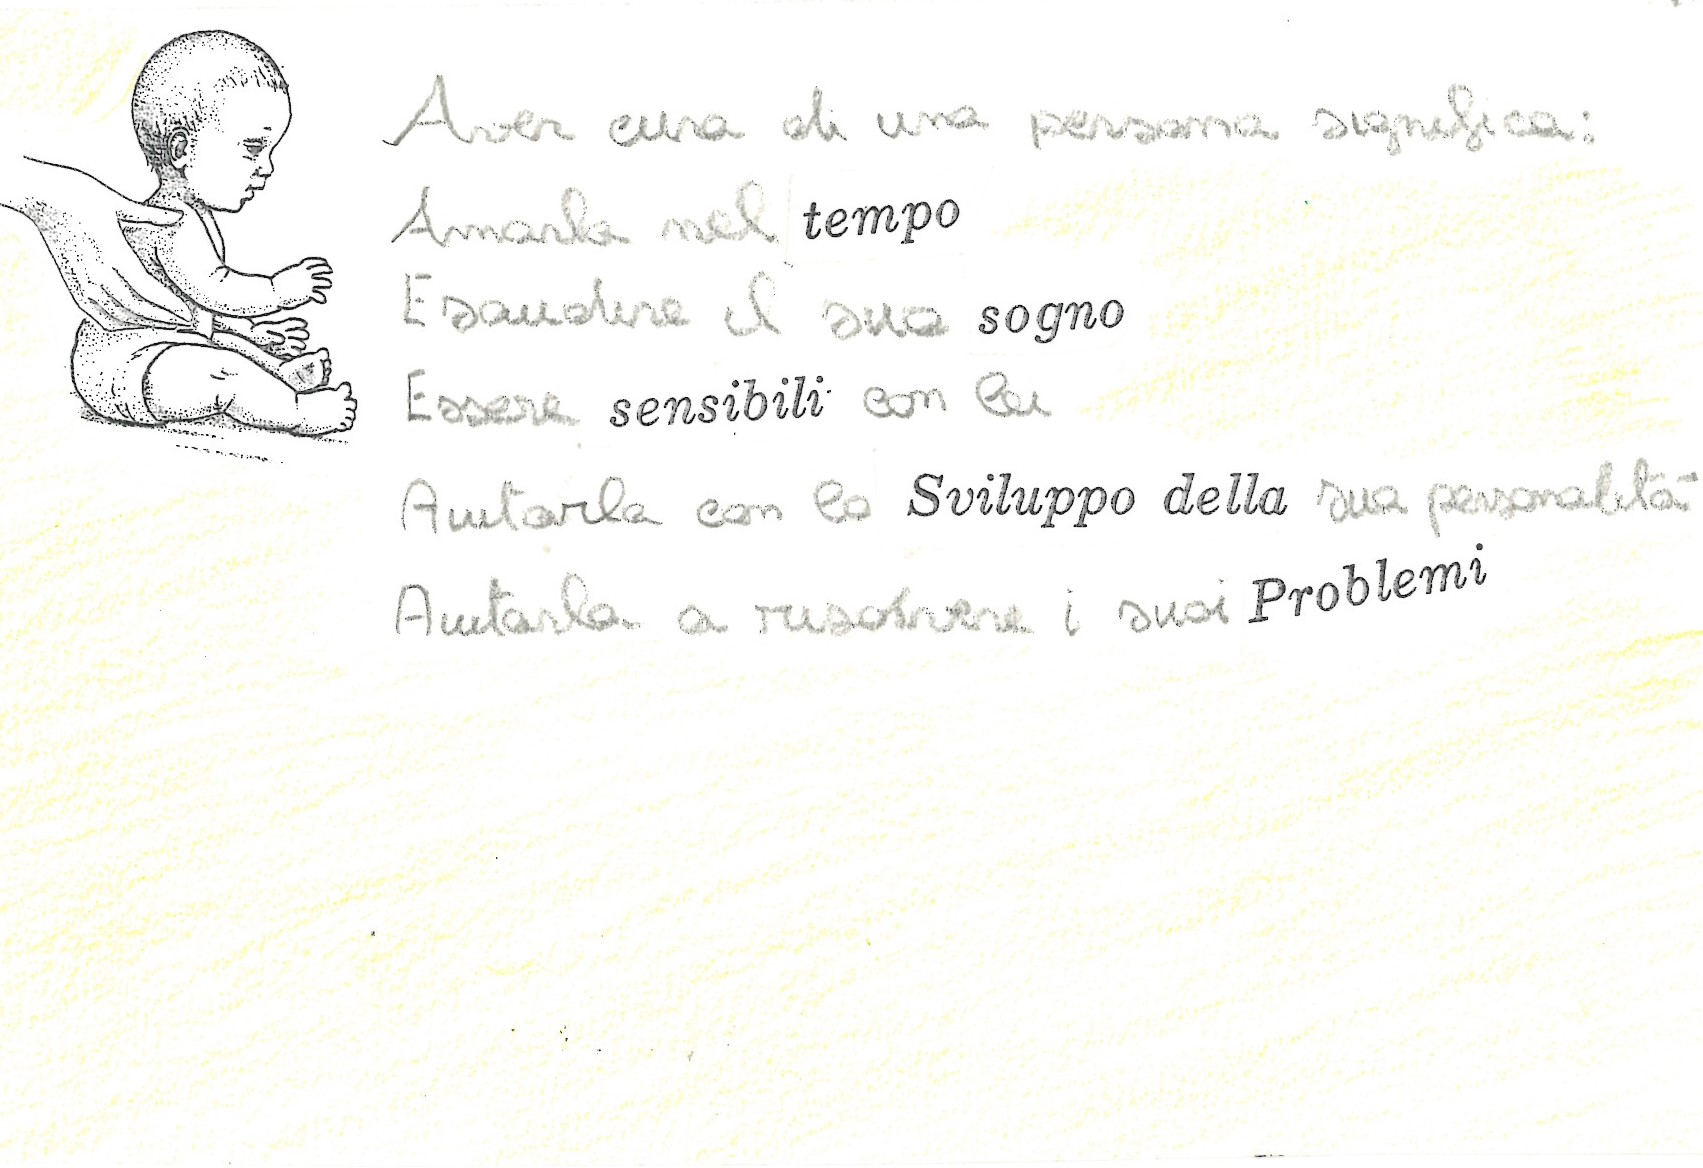 Aver cura di una persona significa:
Amarla nel tempo
Esaudire il suo sogno
Essere sensibili con lei
Aiutarla con lo Sviluppo della sua personalità
Aiutarla a risolvere i suoi Problemi